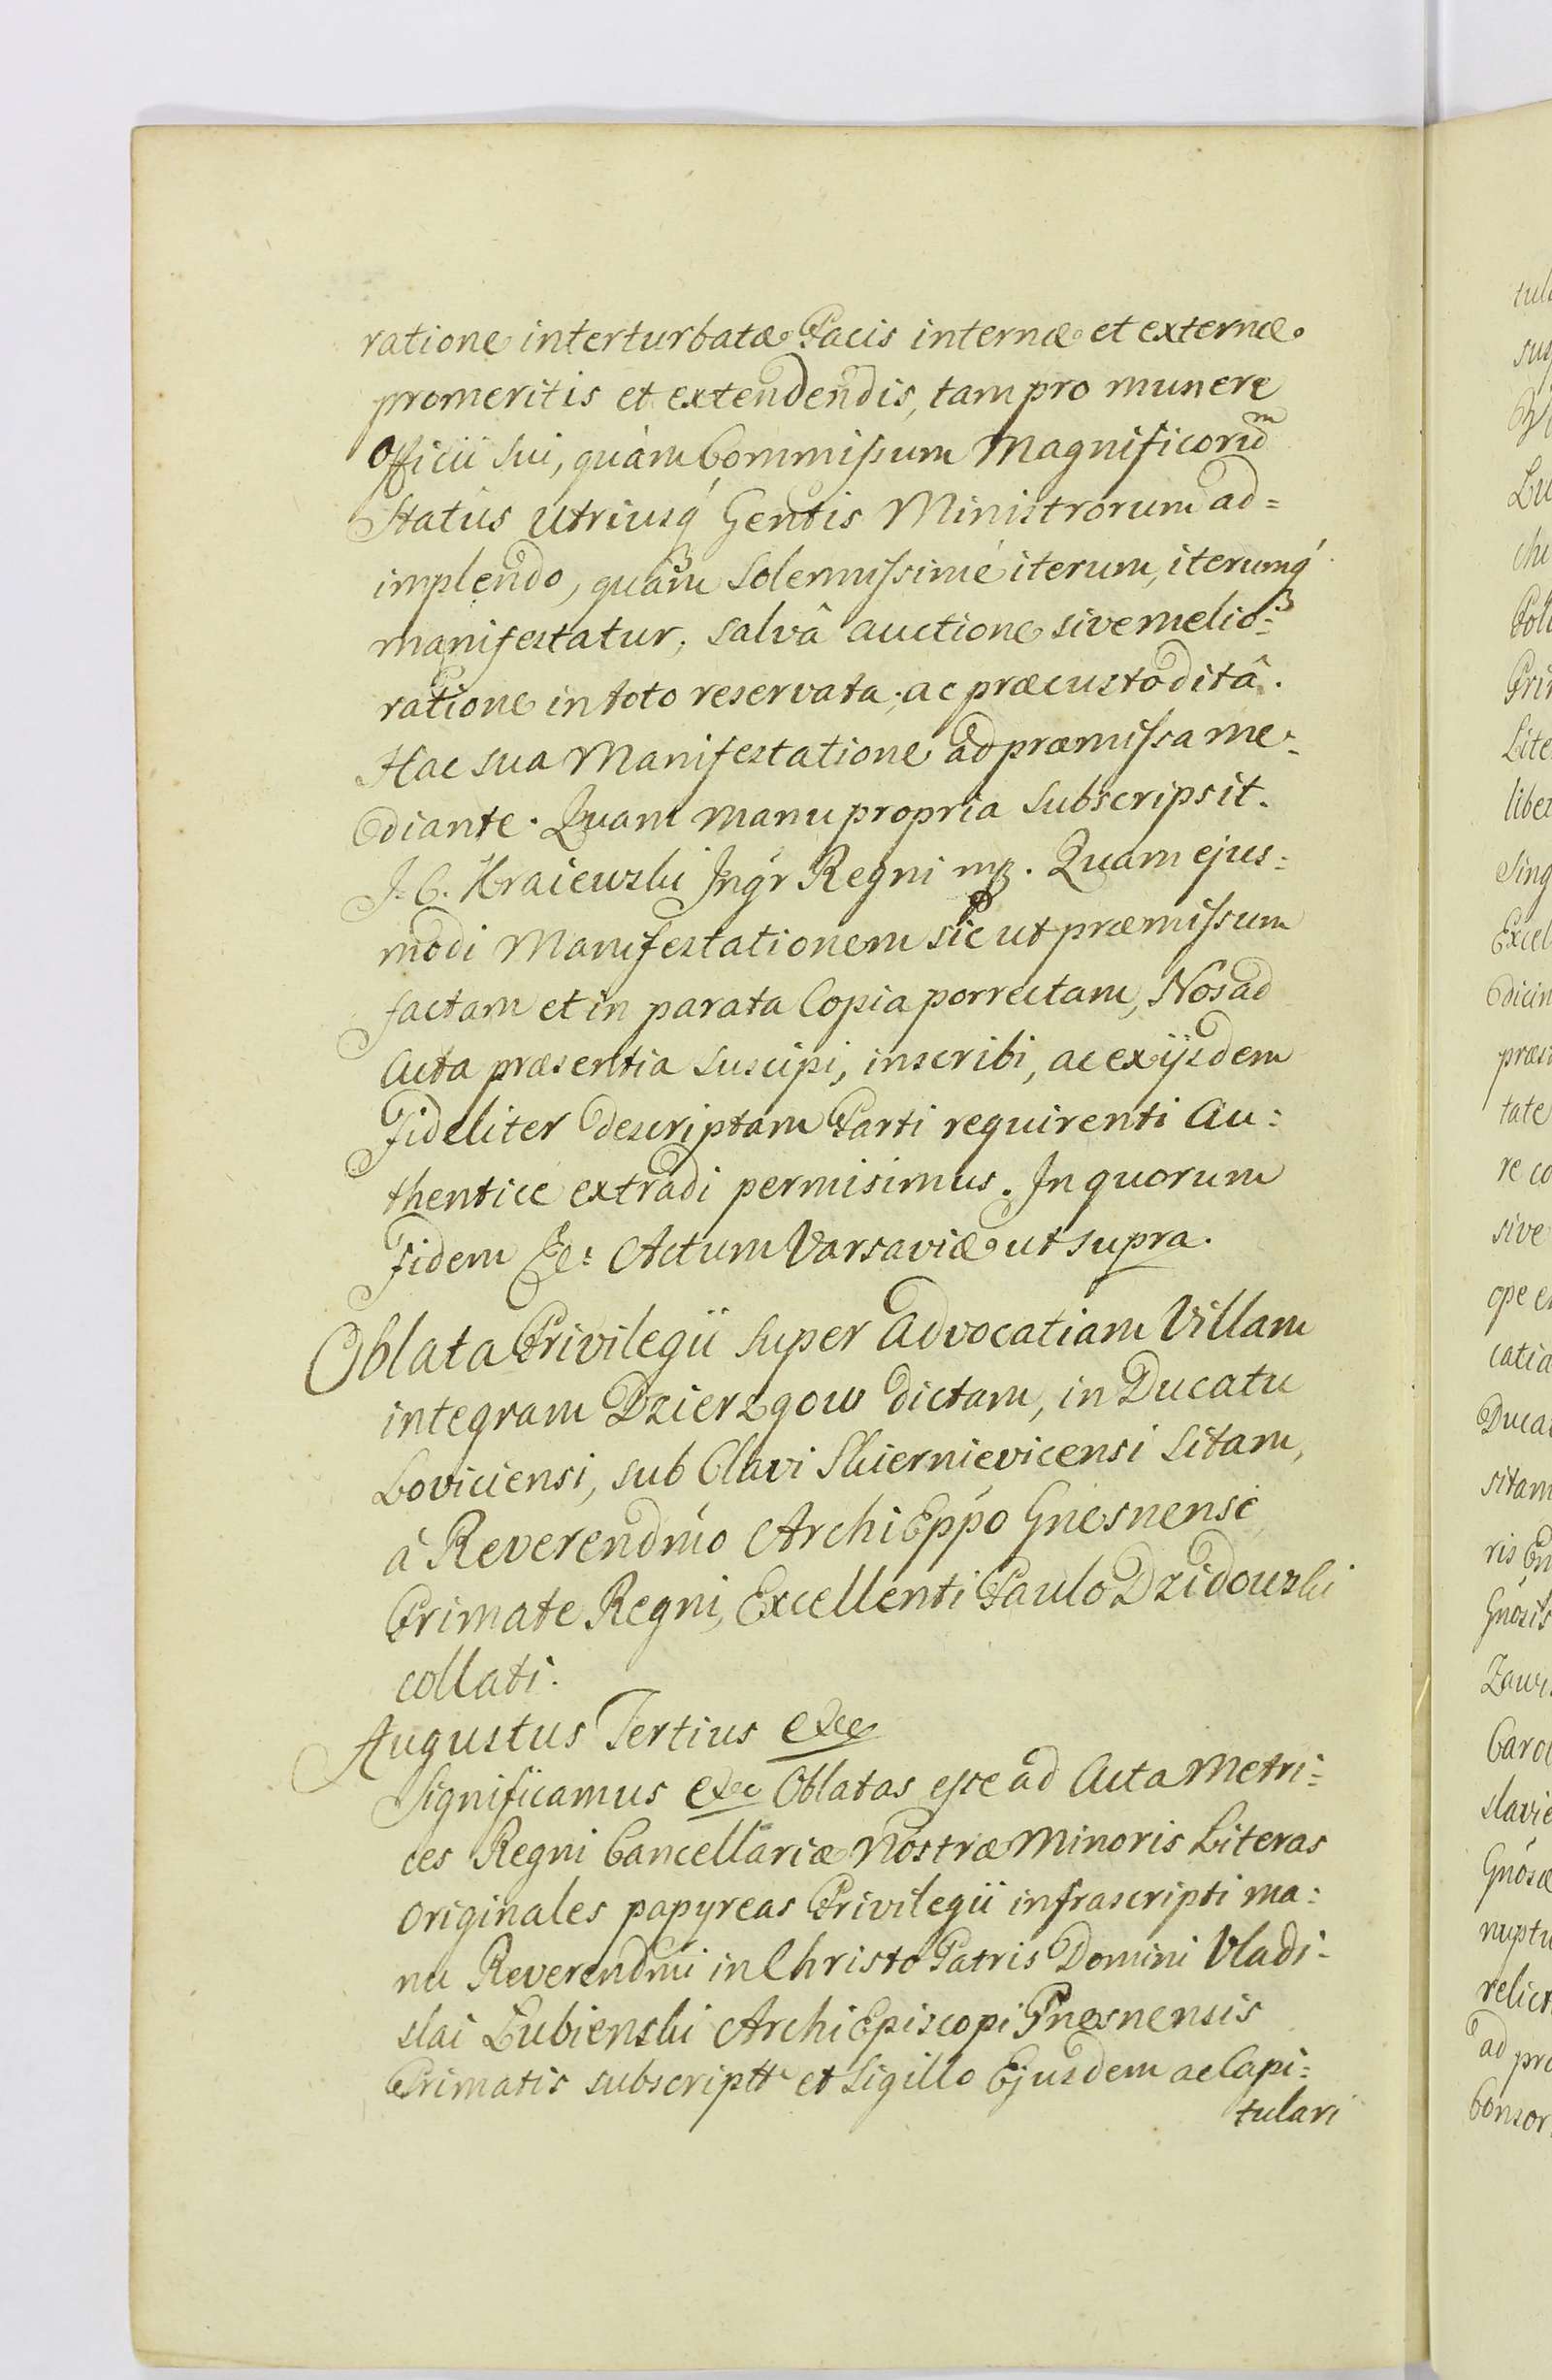 ratione interturbatæ Pacis internæ et externæ
promeritis et extendendis, tam pro munere
Officii sui, quàm Commissum Magnificorum
Statûs utriusq́ Gentis Ministrorum ad=
implendo, quàm solennissimè iterum, iterumq́
manifestatur, salvâ auctione sive melio=
ratione in toto reservata, ac præcustoditâ.
Hac sua Manifestatione ad præmissa me=
diante. Quam manu propria subscripsit.
J. C. Kraiewski Ingr Regni mp. Quam ejus=
modi Manifestationem sic ut præmissum
factam et in parata Copia porrectam, Nos ad
Acta præsentia suscipi, inscribi, ac ex ijsdem
Fideliter descriptam Parti requirenti Au=
thentice extradi permisimus. In quorum
Fidem &c: Actum Varsaviæ ut supra.
Oblata Privilegii super Advocatiam Villam
integram Dzierzgow dictam, in Ducatu
Loviciensi, sub Clavi Skiernievicensi sitam,
à Reverendmo ArchiEppo Gnesnense
Primate Regni, Excellenti Paulo Dzidowski
collati.
Augustus Tertius etc
Significamus etc Oblatas esse ad Acta Metri=
ces Regni Cancellariæ Nostræ Minoris Literas
Originales papyreas Privilegii infrascripti ma=
nu Reverendmi in Christo Patris Domini Vladi=
slai Lubienski ArchiEpiscopi Gnesnensis
Primatis subscriptt et Sigillo Ejusdem ac Capi=
tulari